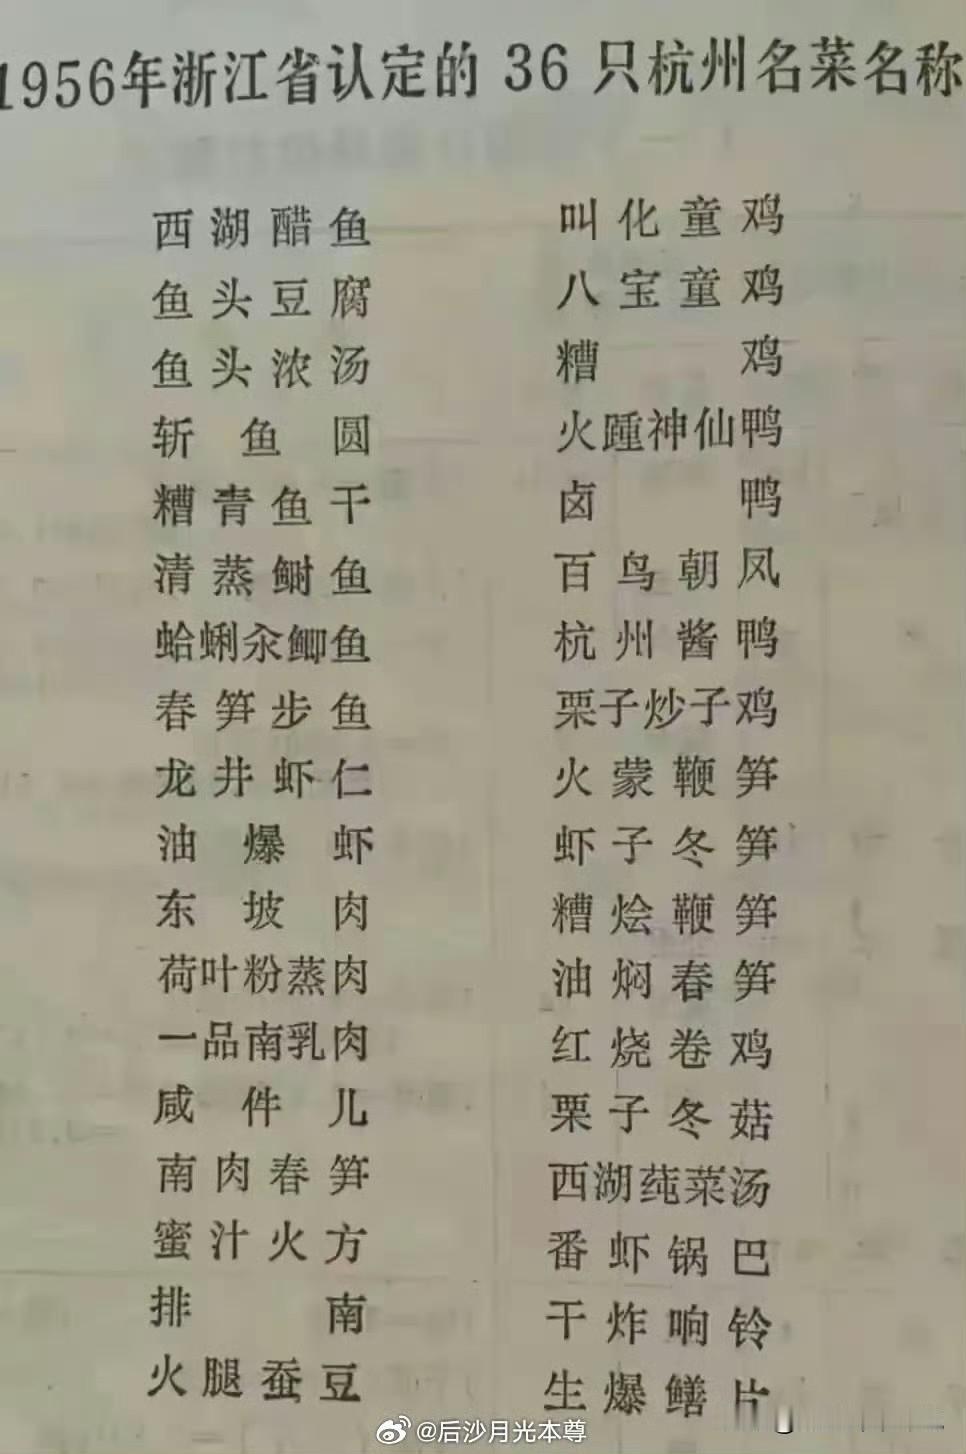 1956年浙江省认定的 36 只杭州名菜名称
西湖醋鱼
鱼头豆腐
鱼头浓汤
斩鱼圆
糟青鱼干
清蒸鲥鱼
蛤蜊汆鲫鱼
春笋步鱼
龙井虾仁
油爆虾
东坡肉
荷叶粉蒸肉
一品南乳肉
咸件儿
南肉春笋
蜜汁火方
排南
火腿蚕豆
叫化童鸡
八宝童鸡
糟鸡
火踵神仙鸭
卤鸭
百鸟朝凤
杭州酱鸭
栗子炒子鸡
火蒙鞭笋
虾子冬笋
糟烩鞭笋
油焖春笋
红烧卷鸡
栗子冬菇
西湖莼菜汤
番虾锅巴
干炸响铃
生爆鳝片
@后沙月光本尊